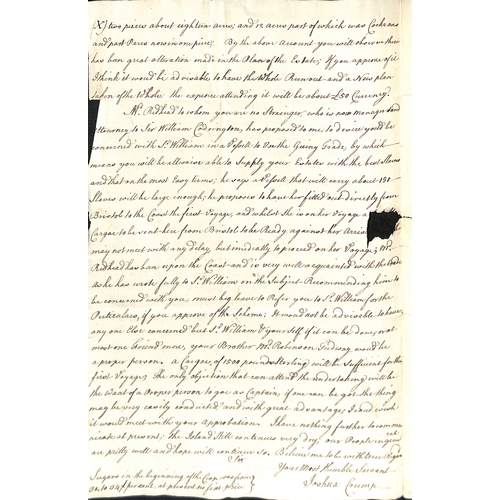 (X) two pieces about eighteen acres; and 12 acres part of which was Cochrans
and part Pares now in one piece; By the above Account you will observe there
has been great alteration made in the Plan of the Estate; If you approve of it
I think it wou'd be advisable to have the Whole Run out and a New plan
taken of the Whole the expence attending it will be about £50 Currency.
Mr. Redhead to whom you are no Stranger, who is now manager and
Attorney to Sir William Codrington, has proposed to me, to desire you'd be
concerned with Sr. William in a Vessell to Use the Guiney Trade, by which
means you will be allways able to Supply your Estates with the best Slaves
and that on the most Easy terms; he says a Vessell that will carry about 150
Slaves will be large enough; he proposes to have her fitted out directly from
Bristol to the Coast the first Voyage, and whilst She is on her Voyage a
Cargoe to be sent here from Bristol to be Ready against her Arrival
may not meet with any delay, but imediatly to proceed on her Voyage; Mr.
Redhead has been upon the Coast and is very well acquainted with the Trade
as he has wrote fully to Sr. William on the Subject Recommending him to
be concerned with you, must beg leave to Refer you to Sr. William for the
Particulars, if you approve of the Scheme; It wou'd not be advisable to have
any one Else concerned but Sr. William & your Self if it can be done, or at
most one Friend more, your Brother Mr. Robinson Tudway wou'd be
a proper person. a Cargoe of 1500 pounds Sterling will be Sufficient for the
first Voyage; The only objection that can attend the undertaking will be
the want of a Proper person to go as Captain; if one can be got the thing
may be very easily conducted and with great advantage; I cou'd wish
it wou'd meet with your Approbation. I have nothing further to commu
nicate at present; the Island Still continues very dry, our People in general
are pretty well and hope will continue So. Believe me to be with true Regard
Sir
Your Most Humble Servant
Joshua Crump
Sugars in the beginning of the Crop
per cent, at present no fix'd price